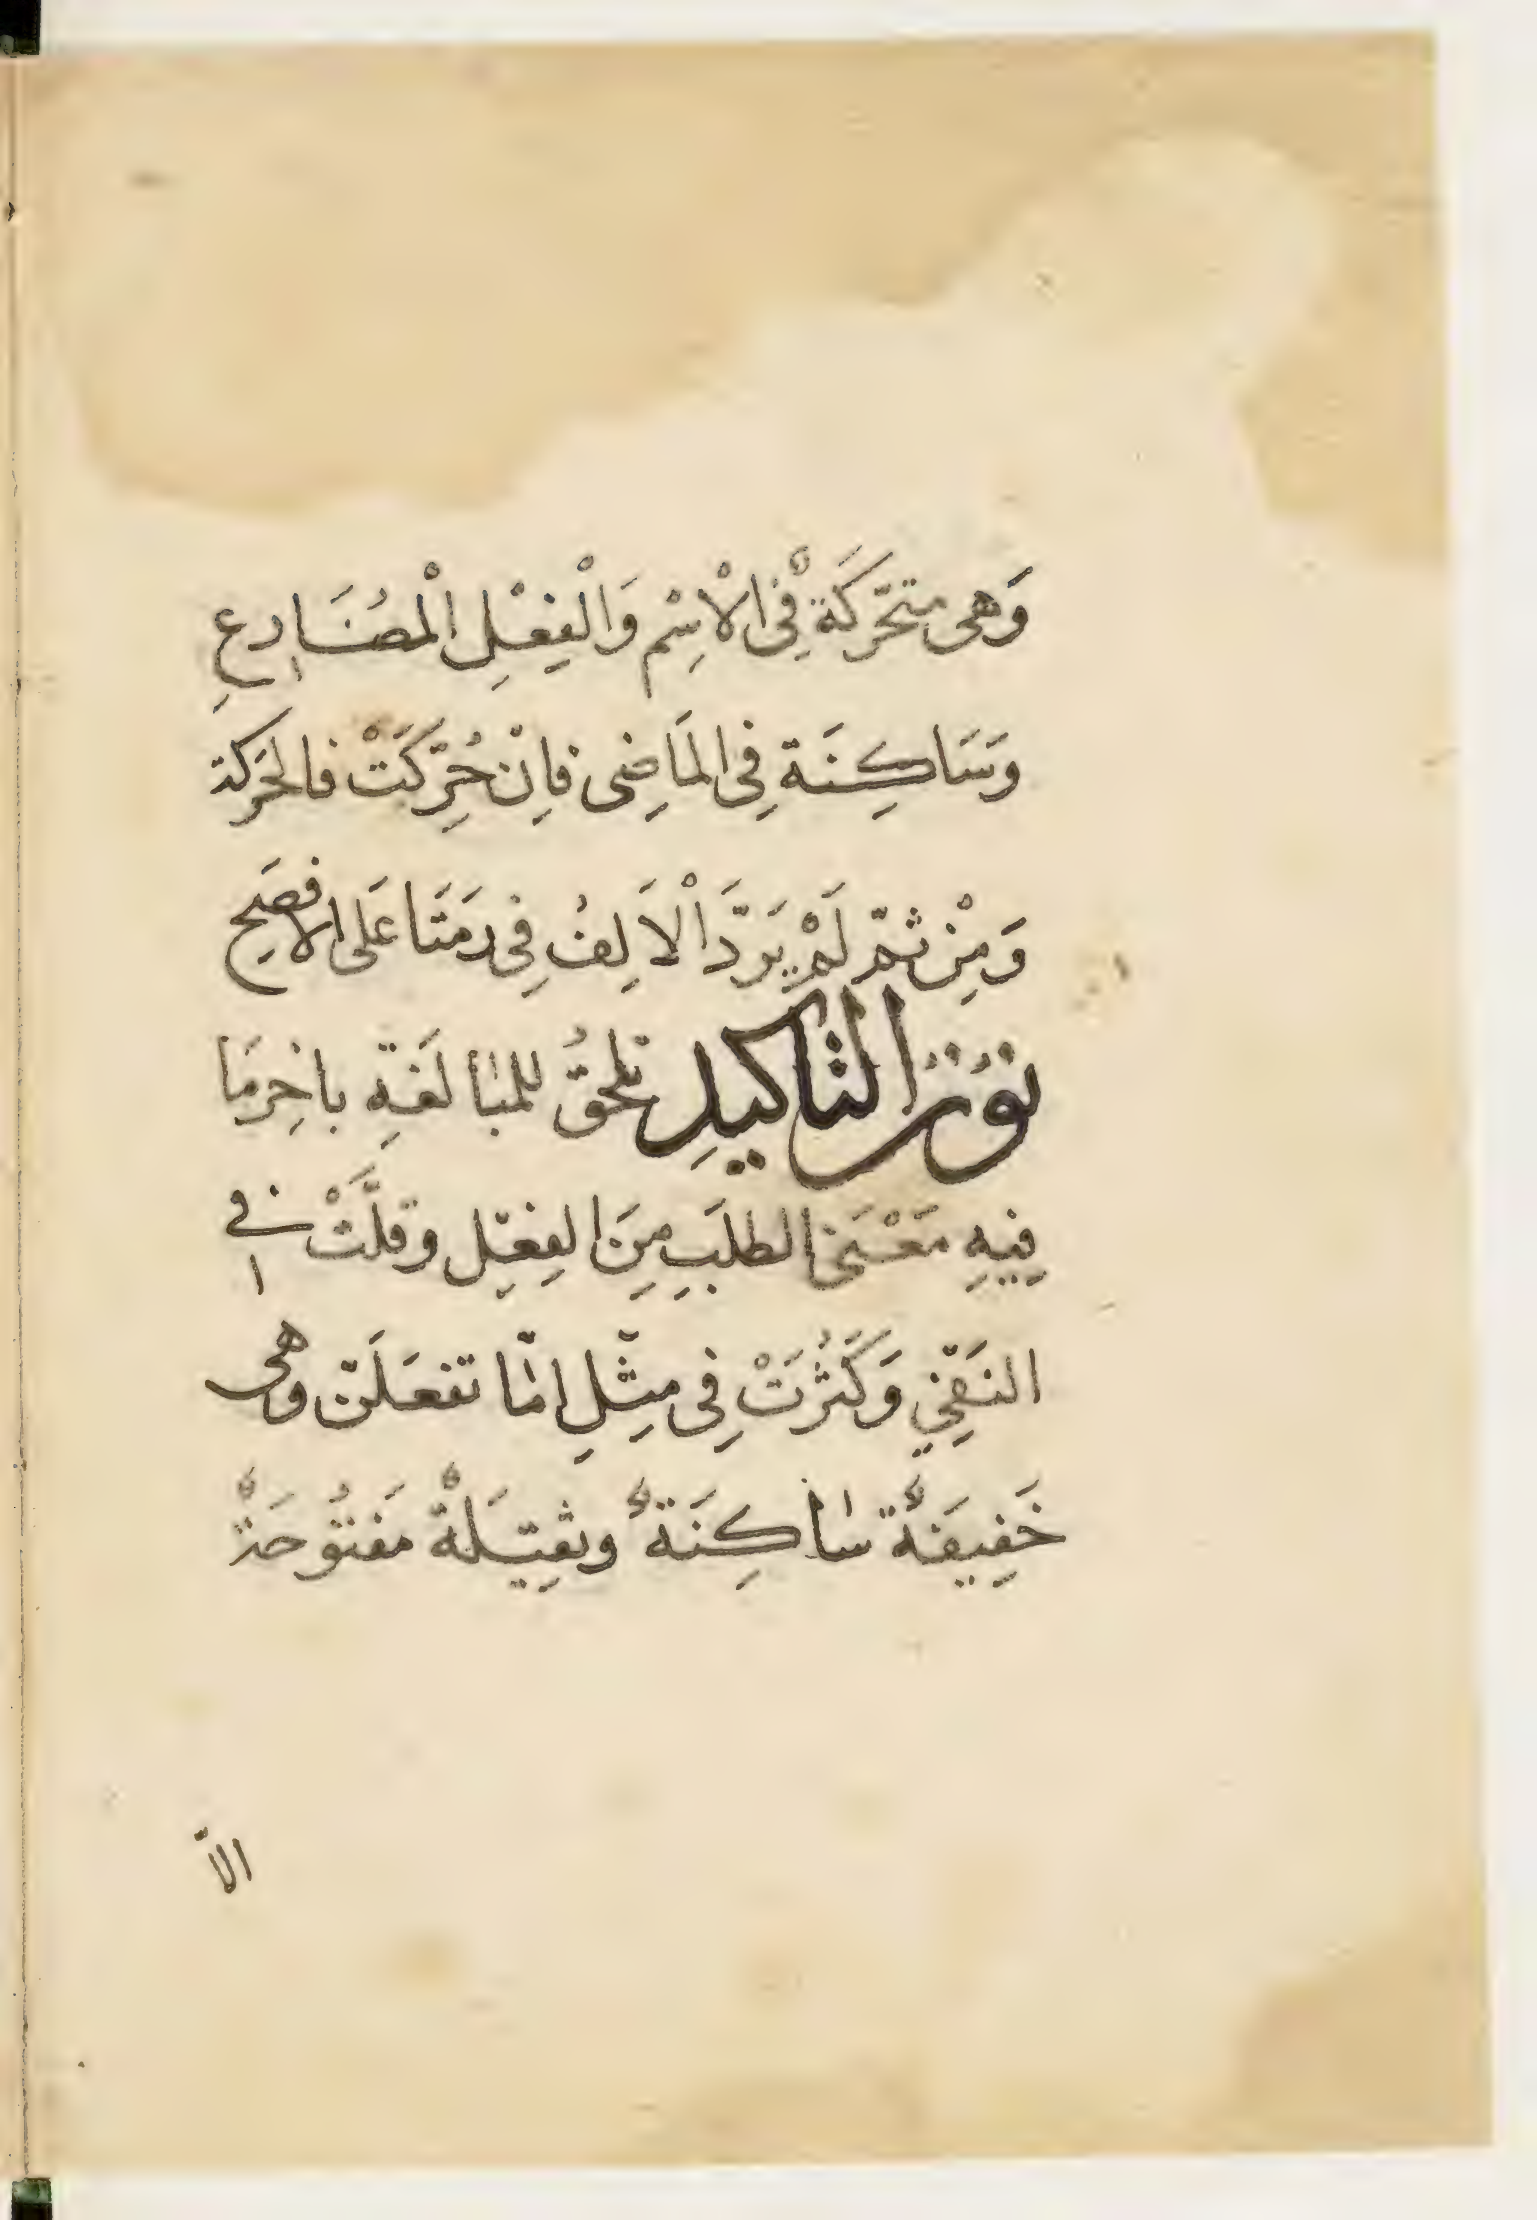 وَهى متحّركَةٌ فِى الْاِسْم وَالْفِعْلِ الْمضُارعِ
وَسَاكِنَة فِى المَاضِى فاِنْ حُرّكَتْ فالحَركة
وَمِنْ ثمّ لَمْ يَردَّ الْاَلِفُ فِى رَمَتَا عَلى الافصَح
نوُنُ التاكيدِ تلحقُ للمبالَغةِ باخِرمَا
فِيهِ مَعْنَى الطلَبِ مِنَ الفِعْلِ وقلَّتْ فى
النَفِى وَكَثُرَتْ فِى مِثْلِ امّا تفعَلَنّ وهى
خَفِيفَةٌ ساكِنَةٌ وثقِيَلةٌ مَفتُوحَةٌ
الاّ